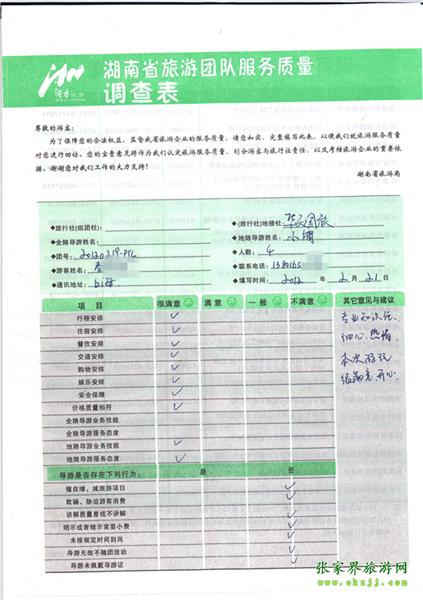 湖南省旅游团队服务质量
调查表
尊敬的游客：
为了保障您的合法权益，监督我省旅游企业的服务质量，请您如实、完整填写此表，以便我们就旅游服务质量
对您进行回访。您的宝贵意见将作为我们认定旅游服务质量、划分游客与旅行社责任、以及考核旅游企业的重要依
据。谢谢您对我们工作的大力支持！
湖南省旅游局
◆旅行社(组团社)： ◆(旅行社)地接社：华天国旅
◆全陪导游姓名： ◆地陪导游姓名：小
◆团号： ◆人数：4
◆游客姓名： ◆联系电话：1380165
◆通讯地址： ◆填写时间：2012 年 2 月 21 日
项 目 很满意 满 意 一 般 不满意 其它意见与建议
行程安排 ✓
住宿安排 ✓
餐饮安排 ✓
交通安排 ✓
购物安排 ✓
娱乐安排 ✓
安全保障 ✓
价格质量相符 ✓
全陪导游业务技能
全陪导游服务态度
地陪导游业务技能 ✓
地陪导游服务态度 ✓
细心、热情
本次游玩
开心
导游是否存在下列行为： 是 否
擅自增、减旅游项目 ✓
欺骗、胁迫游客消费 ✓
讲解质量差或不讲解 ✓
明示或者暗示索要小费 ✓
未按规定时间到岗 ✓
导游无故不随团活动 ✓
导游未佩戴导游证 ✓
张家界旅游网
www.okzjj.com